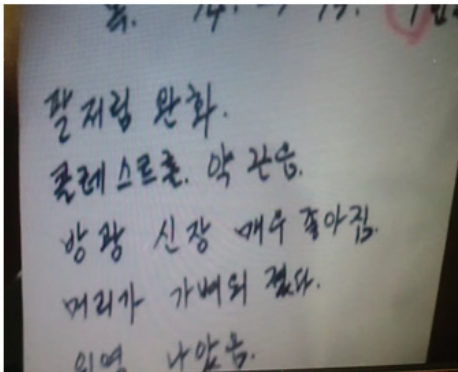 팔저림 완화.
콜레스트롤. 약 끈음.
방광 신장 매우 좋아짐.
머리가 가벼워 졌다.
위염 나았음.